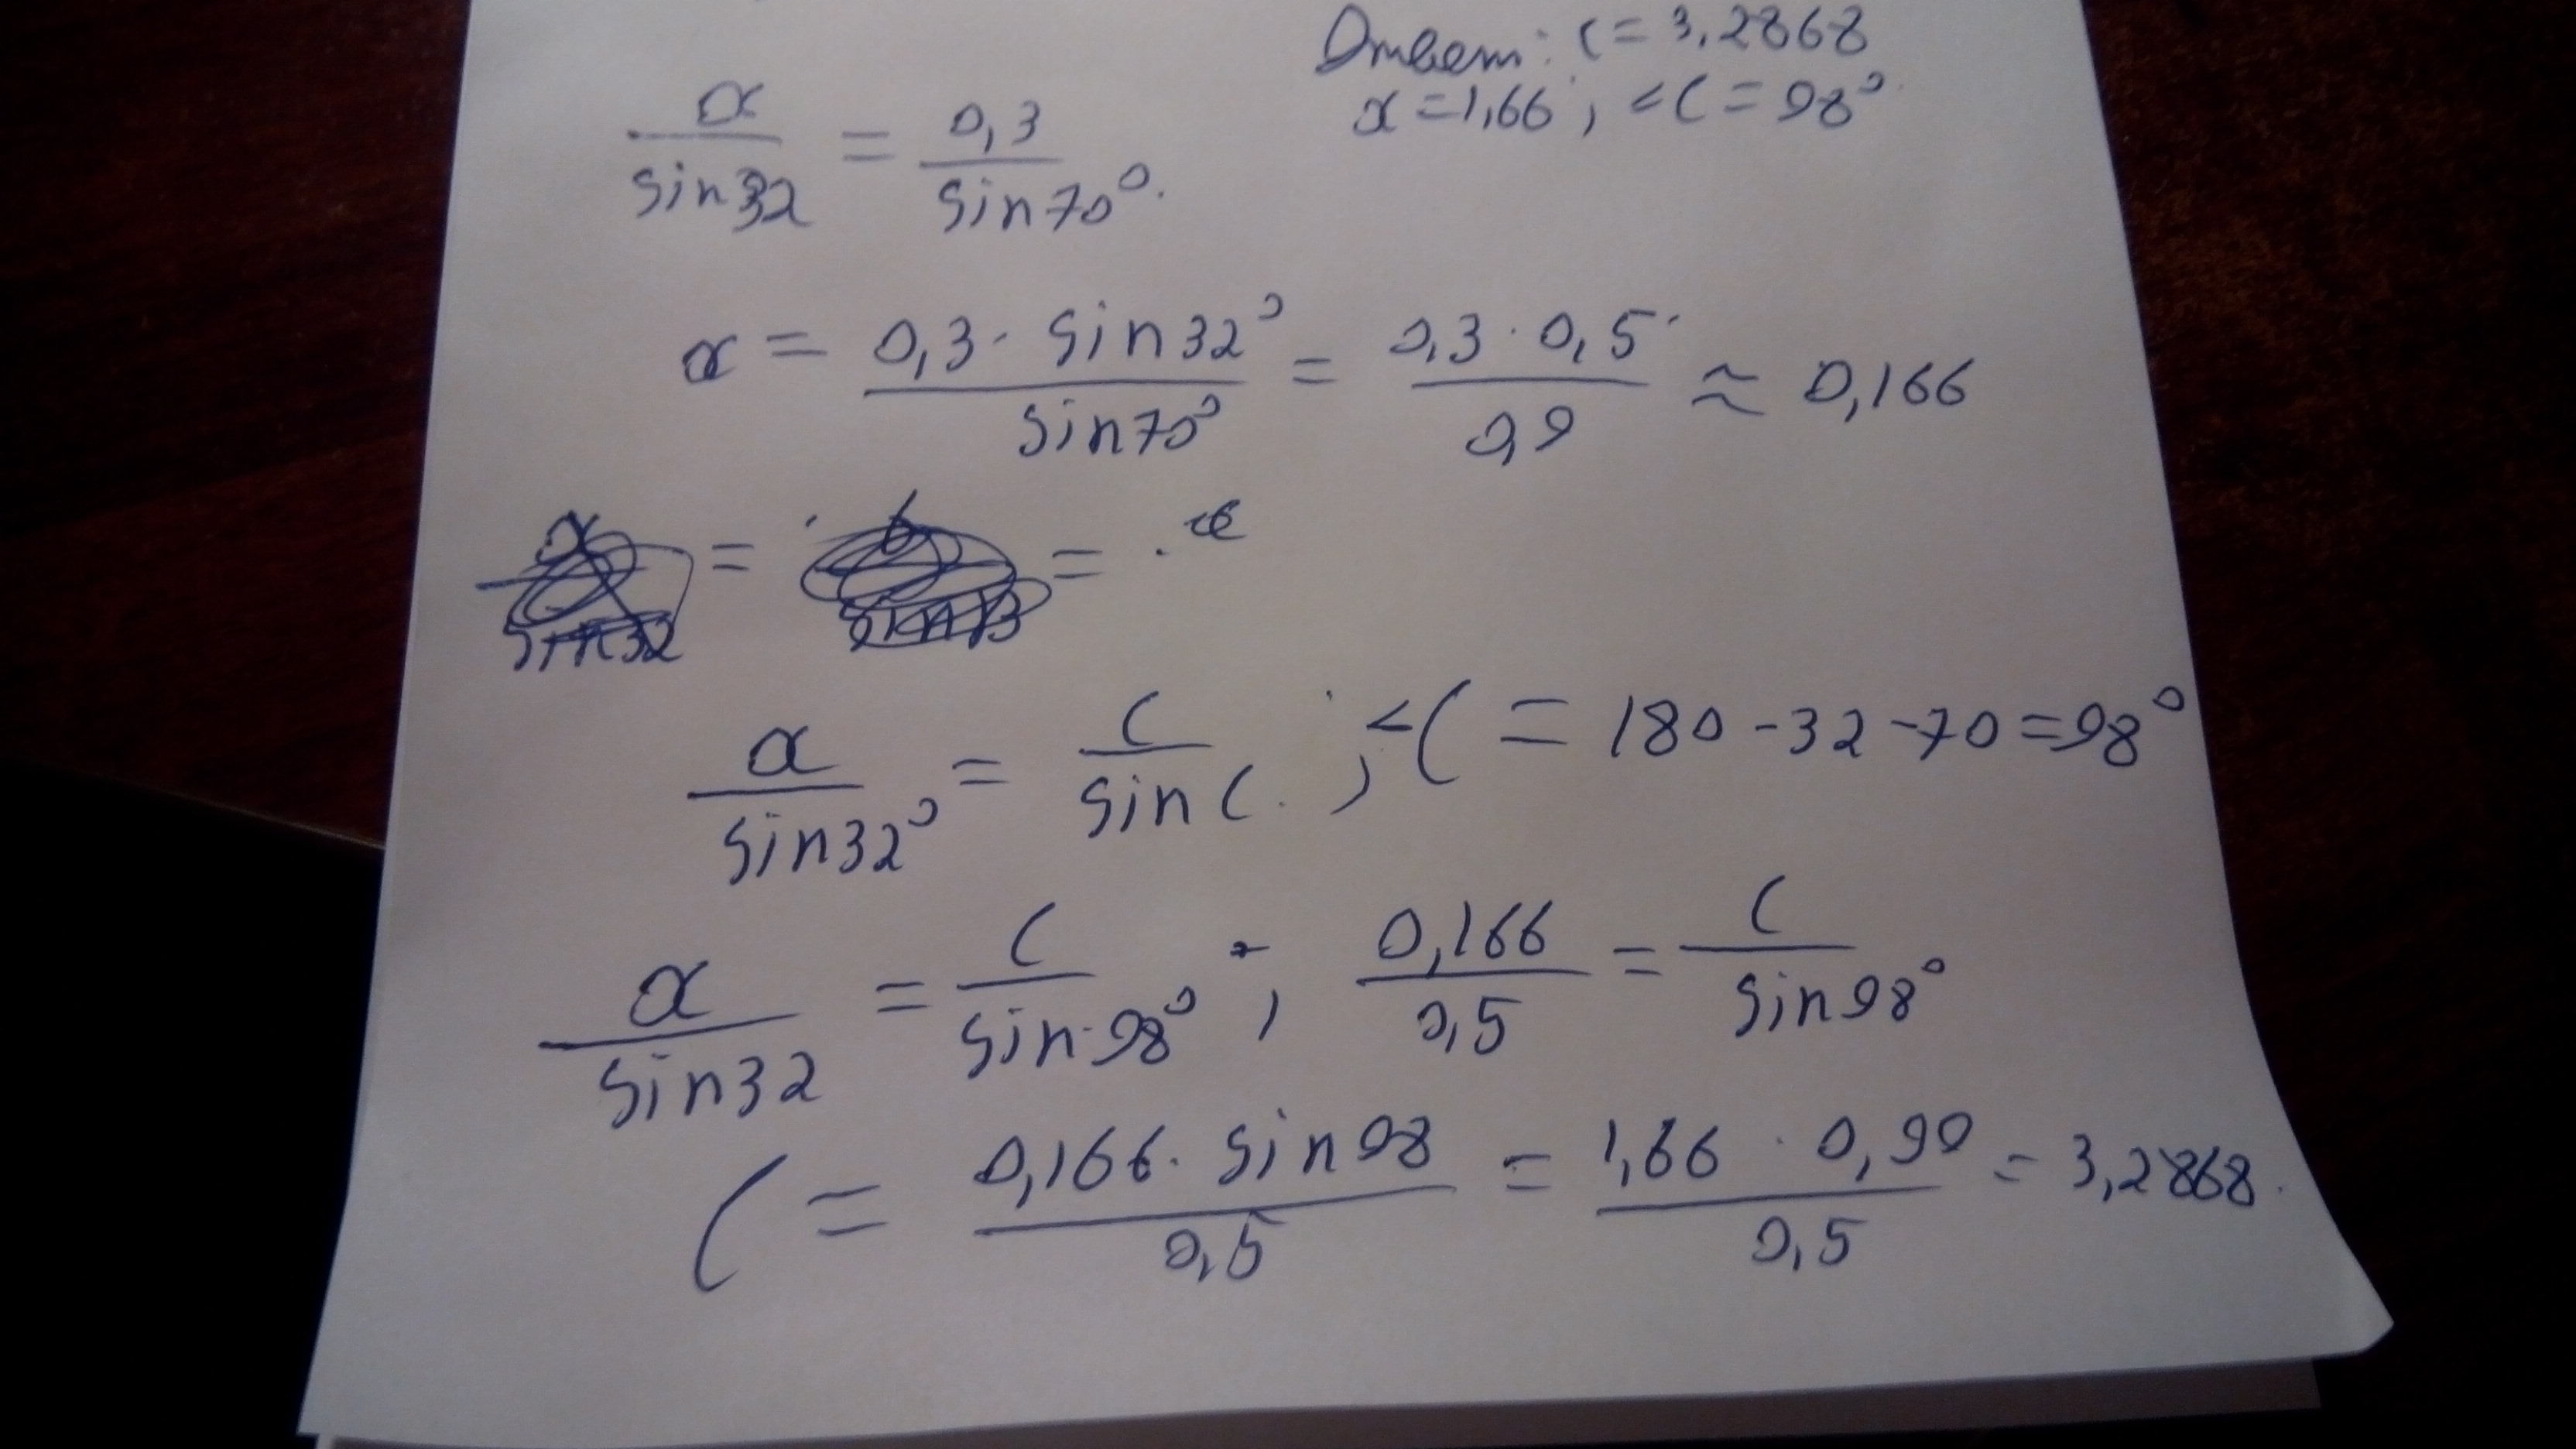 Ответ: c = 3,2868
x = 1,66 ; <C = 98°
x/sin32 = 0,3/sin70°.
x = 0,3 · sin32°/sin70° = 0,3 · 0,5/0,9 ≈ 0,166
= =
x/sin32° = c/sinC. ; <C = 180 - 32 - 70 = 98°
x/sin32 = c/sin98° ; 0,166/0,5 = c/sin98°
C = 0,166 · sin98/0,5 = 1,66 · 0,99/0,5 = 3,2868.